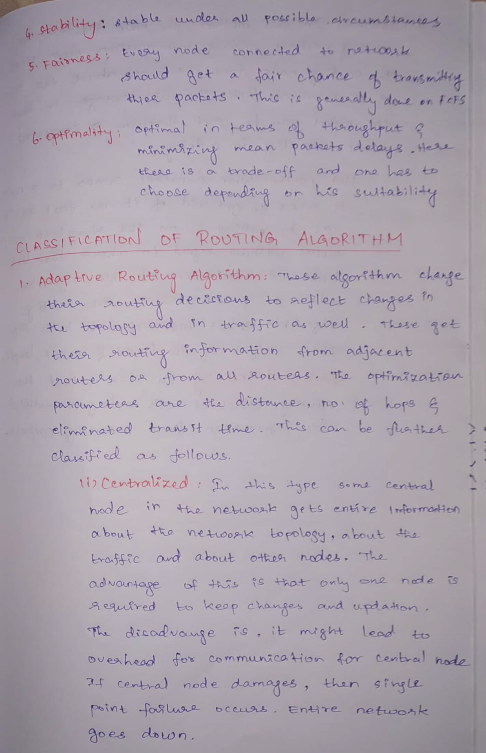 4. Stability: stable under all possible circumstances
5. Fairness: Every node connected to network
should get a fair chance of transmitting
their packets. This is generally done on FCFS
6. Optimality: optimal in terms of throughput &
minimizing mean packets delays. Here
there is a trade-off and one has to
choose depending on his suitability
CLASSIFICATION OF ROUTING ALGORITHM
1. Adaptive Routing Algorithm: These algorithm change
their routing decisions to reflect changes in
the topology and in traffic as well. These get
their routing information from adjacent
routers or from all routers. The optimization
parameters are the distance, no. of hops &
eliminated transit time. This can be further
classified as follows.
1(i) Centralized: In this type some central
node in the network gets entire Information
about the network topology, about the
traffic and about other nodes. The
advantage of this is that only one node is
required to keep changes and updation.
The disadvange is, it might lead to
overhead for communication for central node
If central node damages, then single
point failure occurs. Entire network
goes down.